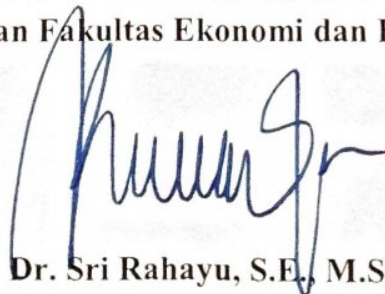 an Fakultas Ekonomi dan
Dr. Sri Rahayu, S.E., M.S